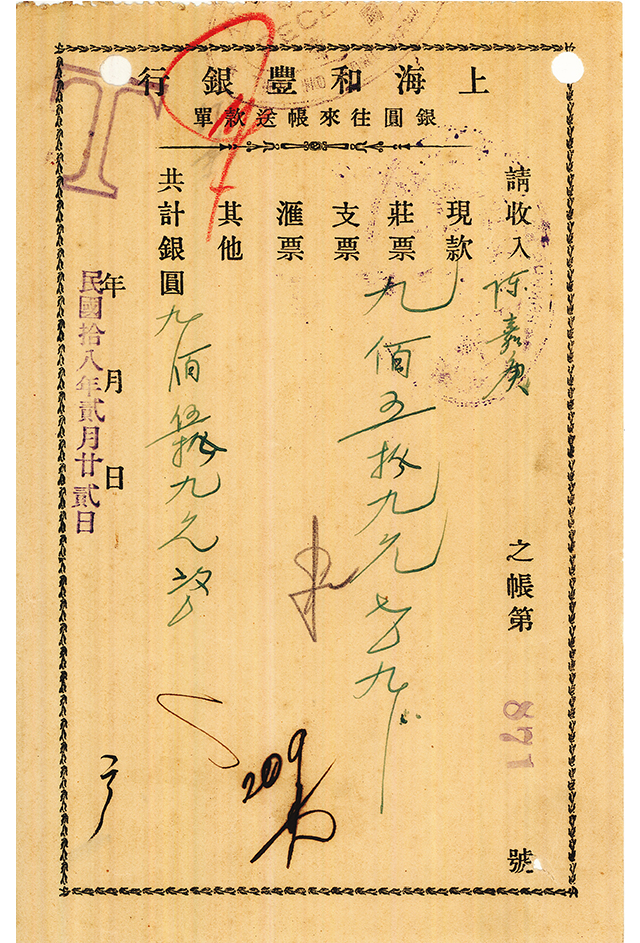 上海和豐銀行
銀圓往來帳送款單
請收入 陈嘉庚 之帳第 871 號
現款
莊票 九佰五拾九元
支票
滙票
其他
共計銀圓 九佰伍拾九元
年 月 日
民國拾八年貳月廿貳日
T
209